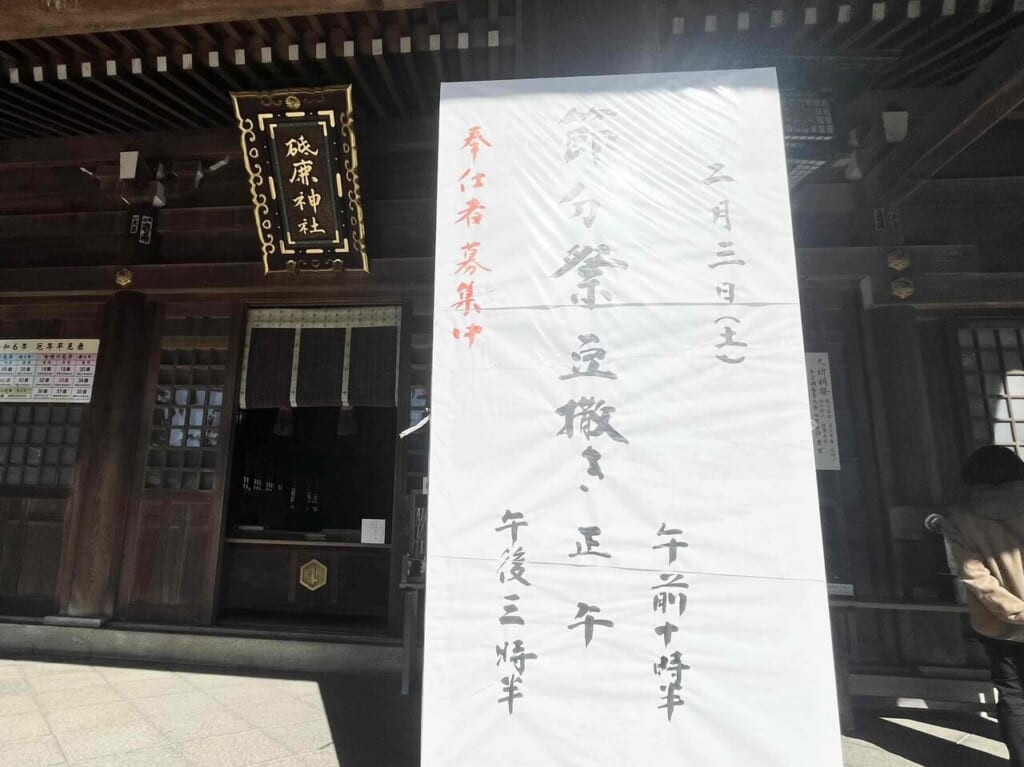 二月三日(土)
節分祭
豆撒き
午前十時半
正午
午後三時半
奉仕者募集中
砥鹿神社
令和6年 厄年早見表